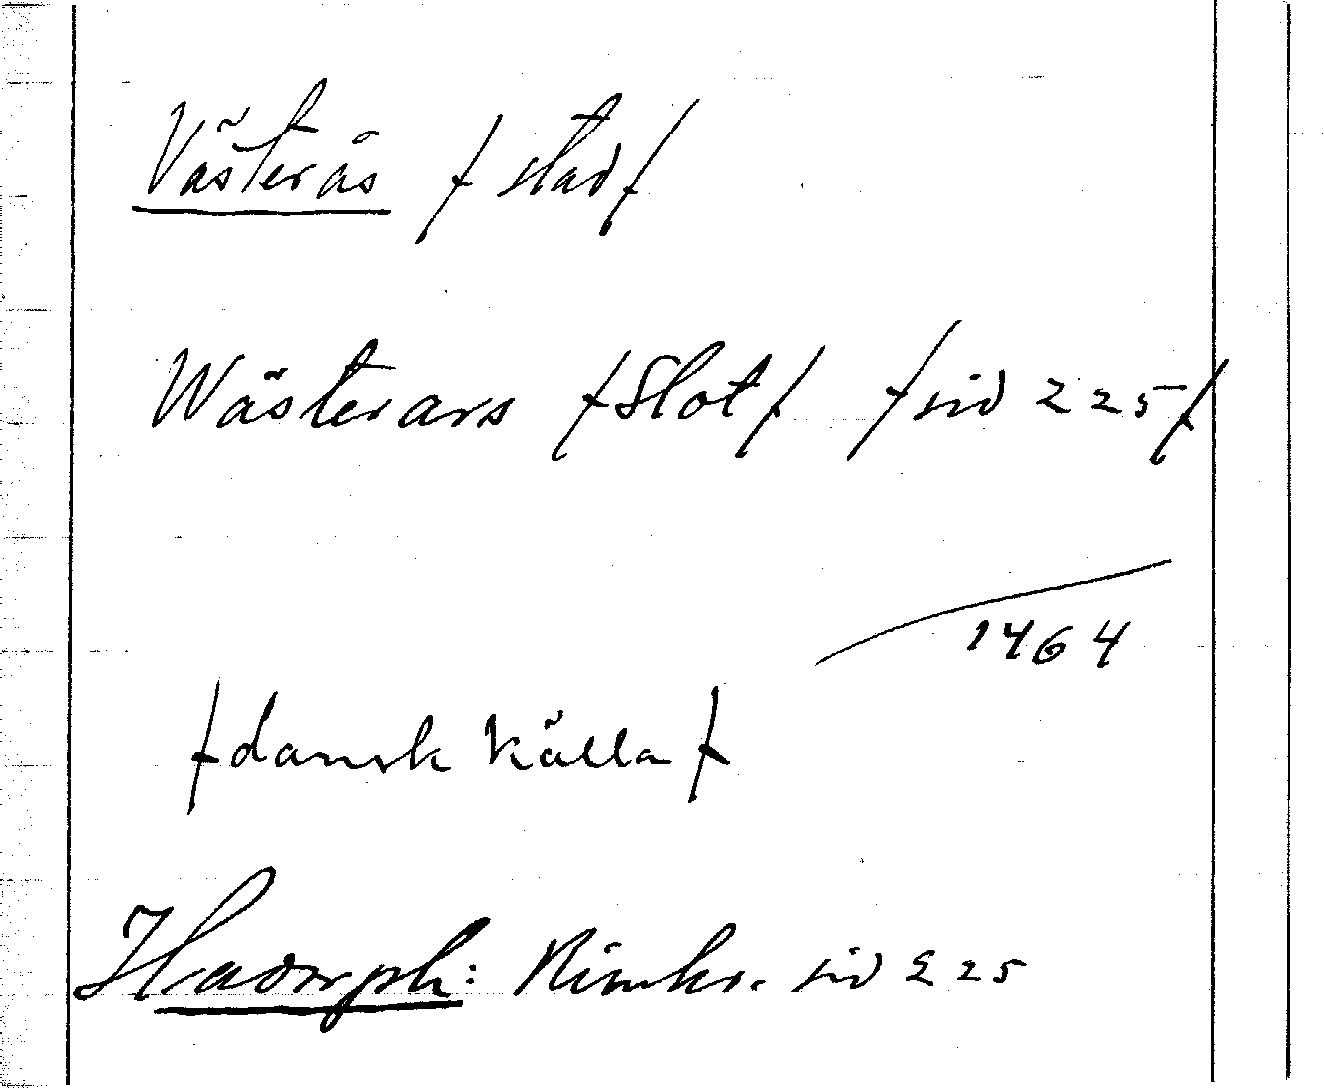 Västerås /stad/
Wästerars /Slot/ /sid 225/
1464
/dansk källa/
Hadorph: Rimkr. sid 225